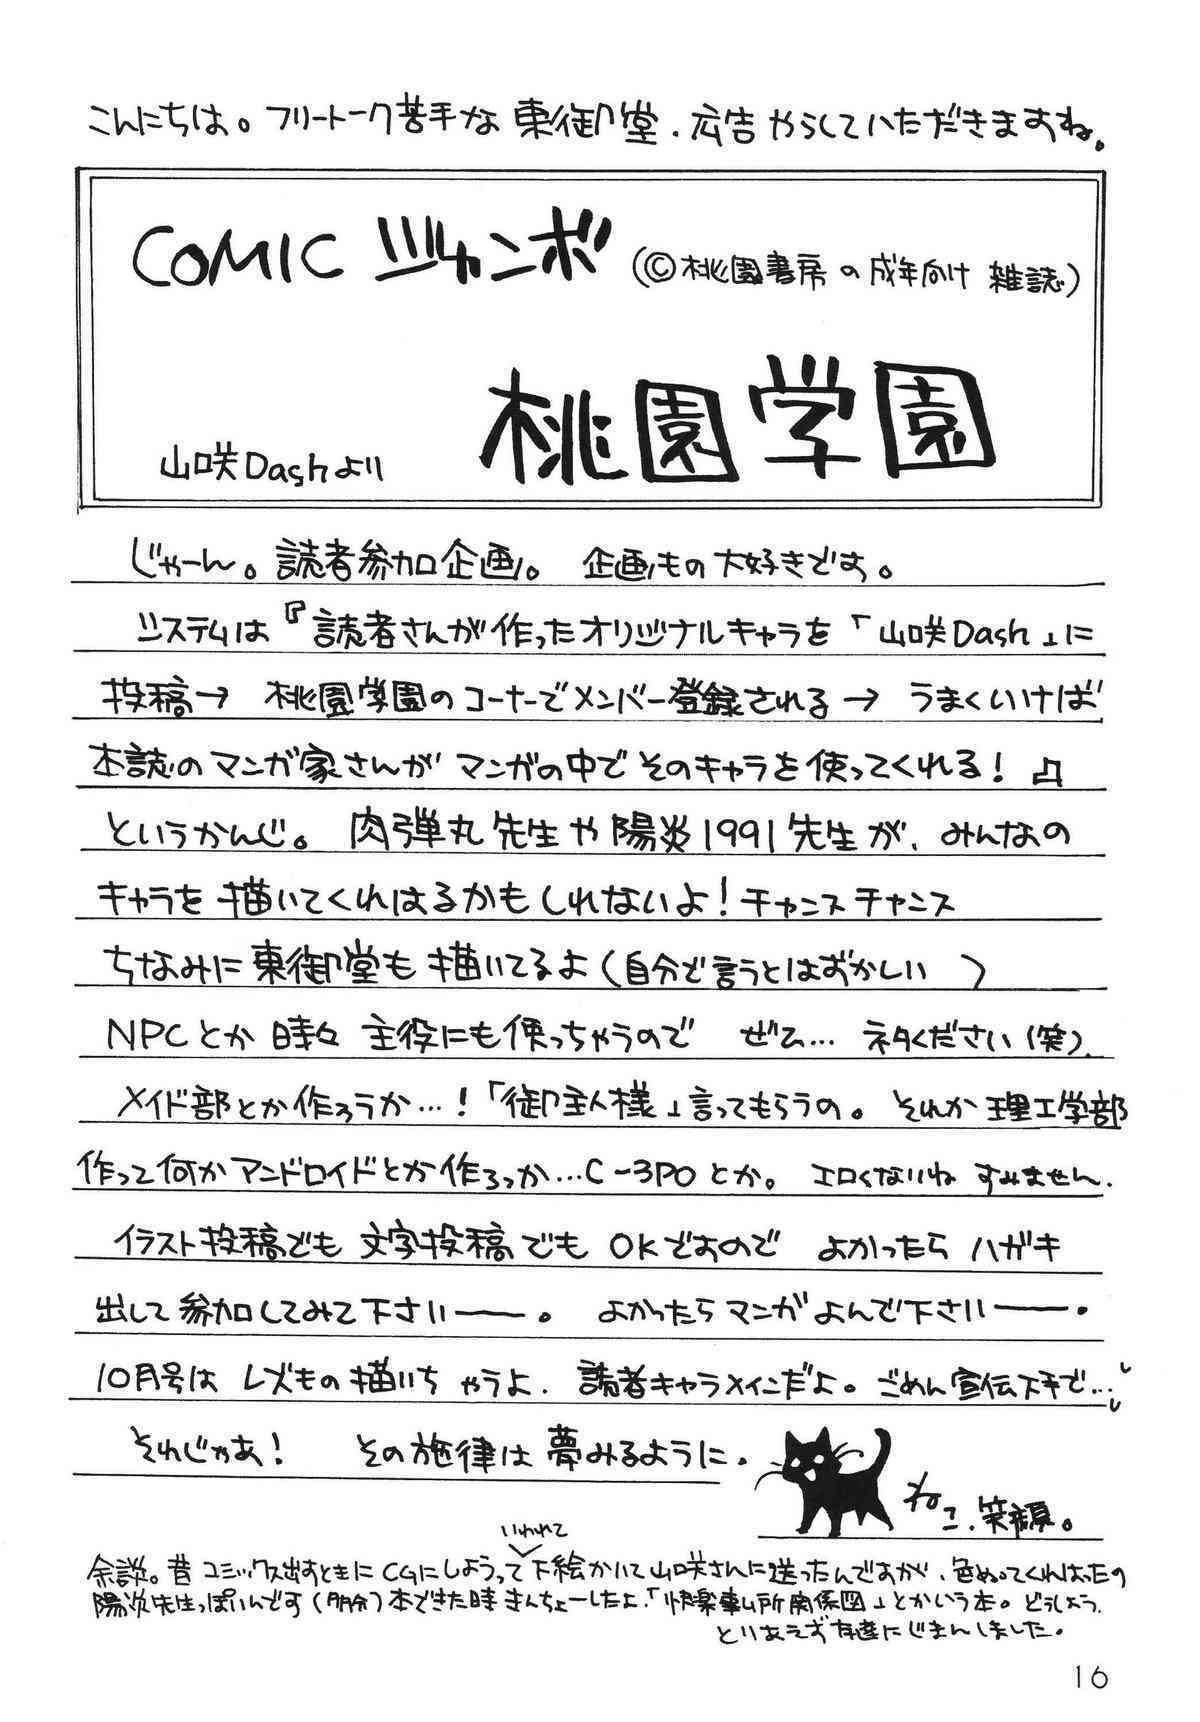 こんにちは。フリートーク苦手な 東御堂．広告やらしていただきますね。
COMIC ジャンボ (©桃園書房の成年向け 雑誌)
桃園学園
山咲Dashより
じゃーん。読者参加企画。 企画もの大好きです。
システムは『読者さんが作ったオリジナルキャラを「山咲Dash」に
投稿→ 桃園学園のコーナーでメンバー登録される→ うまくいけば
本誌のマンガ家さんが マンガの中でそのキャラを使ってくれる！』
というかんじ。 肉弾丸先生や陽炎1991先生が、みんなの
キャラを描いてくれはるかもしれないよ！チャンスチャンス
ちなみに東御堂も描いてるよ(自分で言うとはずかしい )
NPCとか 時々 主役にも使っちゃうので ぜひ… ネタください(笑).
メイド部とか作ろうか…！「御主人様」言ってもらうの。 それか理工学部
作って何かアンドロイドとか作ろっか…C-3POとか。 エロくないね すみません.
イラスト投稿でも 文字投稿でも OKですので よかったら ハガキ
出して参加してみて下さいーー。 よかったらマンガよんで下さいーー．
10月号は レズもの描いちゃうよ．読者キャラメインだよ。ごめん宣伝下手で…
それじゃあ！ その施律は夢みるように．
ねこ．笑顔。
いわれて
余談。昔 コミックス出すときに CGにしようって下絵かいて山咲さんに送ったんですが、色ぬってくれはったの
陽炎先生っぽいんです(多分)本できた時きんちょーしたよ．「快楽事ム所関係図」とかいう本。どうしよう．
とりあえず友達にじまんしました．
16